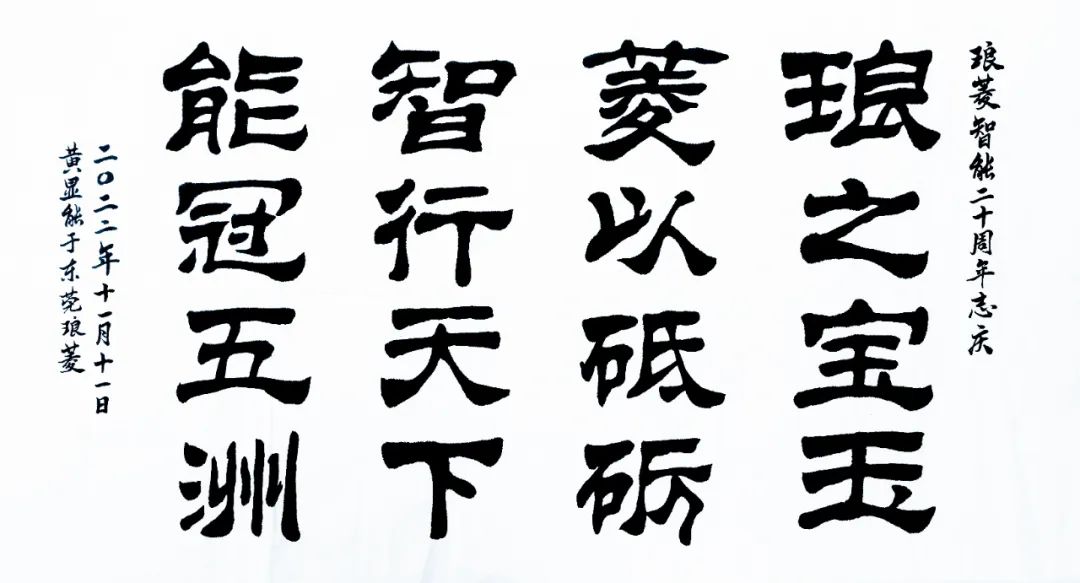 琅菱智能二十周年志庆
琅之宝玉
菱以砥砺
智行天下
能冠五洲
二〇二二年十一月十一日
黄显能于东莞琅菱